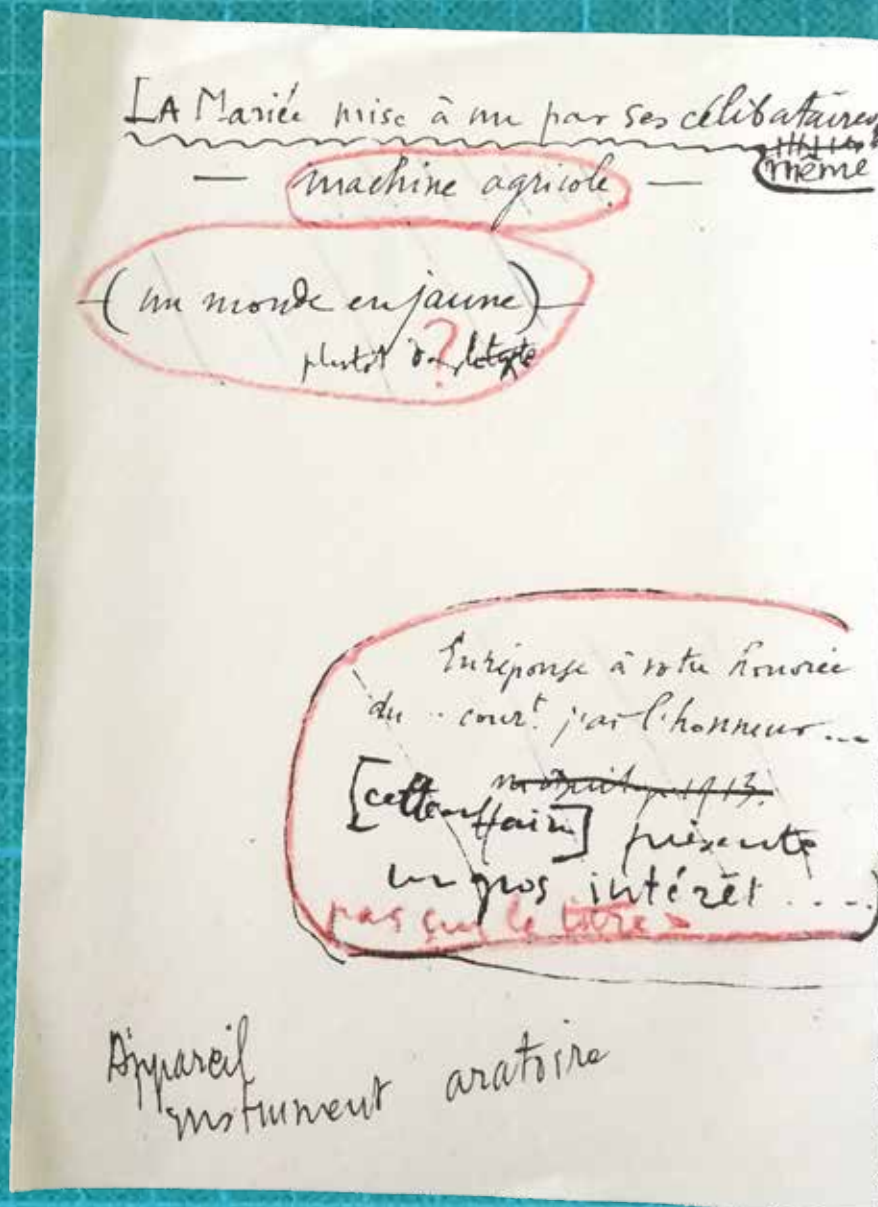 LA Mariée mise à nu par ses célibataires,
même
— machine agricole —
(un monde en jaune)
?
plutôt dans le texte
En réponse à votre honorée
du .. court j'ai l'honneur ...
1913.
[cette affaire] présente
un gros intérêt ....
pas sur le titre
Appareil
instrument aratoire